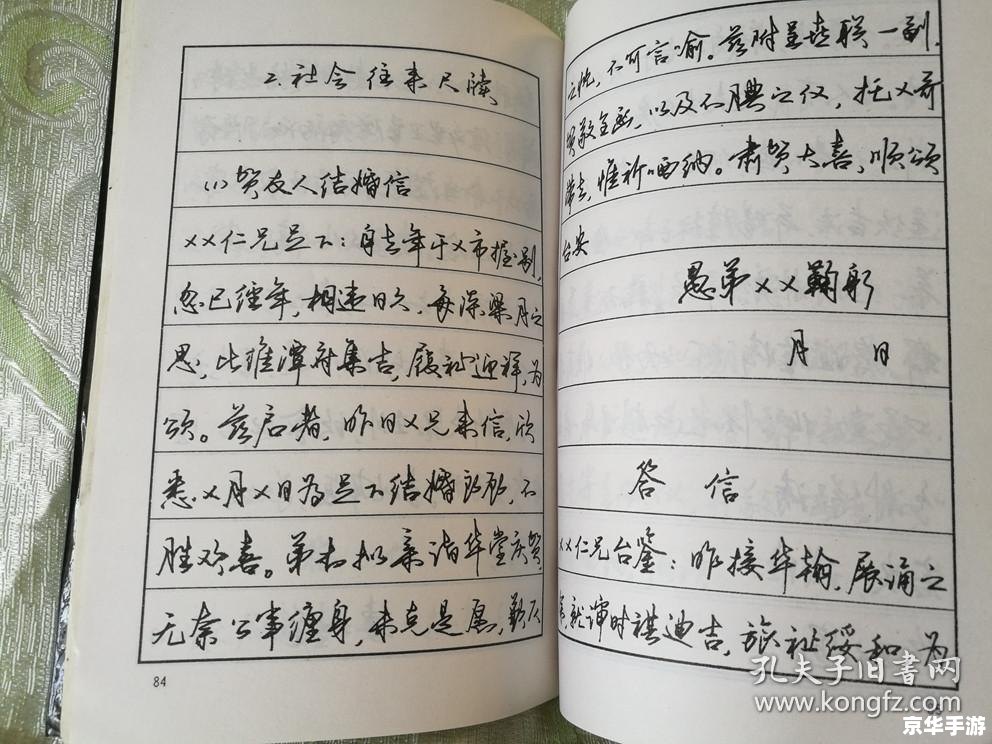 2.社会往来尺牍
(1)贺友人结婚信
××仁兄足下：自去年于×市握别，
忽已经年，相违日久，每深梁月之
思，比维潭府集吉，履祉迎祥，为
颂。兹启者，昨日×兄来信，欣
悉×月×日为足下结婚之辰，不
胜欢喜。弟本拟亲诣华堂庆贺，
无奈公事缠身，未克是愿，歉仄
84
之忱，不可言喻。兹附呈喜联一副，
敬金函，以及不腆之仪，托×哥
带去，惟祈哂纳。肃贺大喜，顺颂
台安
愚弟××鞠躬
月 日
答 信
××仁兄台鉴：昨接华翰，展诵之
就谂时祺迪吉，旅祉绥和，为
孔夫子旧书网
www.kongfz.com
京华手游